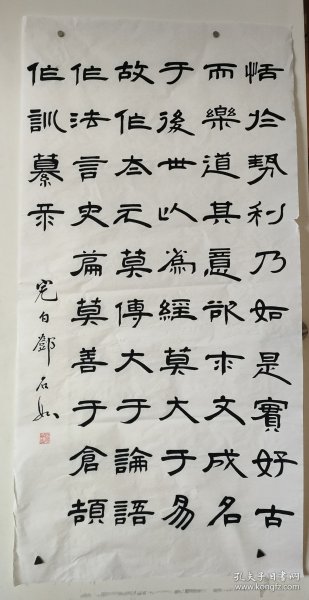 恬於勢利乃如是實好古
而樂道其意欲求文成名
于後世以為經莫大于易
故作太元莫傳大于論語
作法言史篇莫善于倉頡
作訓纂
完白鄧石如
孔夫子旧书网